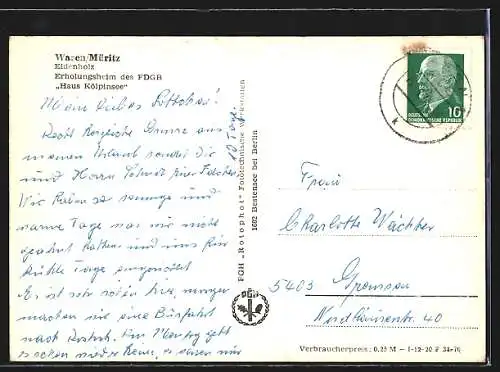 Waren/Müritz
Eldenholz
Erholungsheim des FDGB
„Haus Kölpinsee"
Mein liebes Lottchen!
Recht herzliche Grüsse aus
meinem Urlaub sendet Dir
und Herrn
Wir haben so sonnige und
warme Tage was wir nicht
geahnt hatten und uns für
kühle Tage eingestellt
Es ist sehr schön hier, morgen
machen wir eine Busfahrt
nach Rostock. Am Montag geht
es schon wieder heim, es waren nur
10 Tage.
PGH „Rotophot" Fototechnische Werkstätten
1602 Bestensee bei Berlin
PGH
DEUTSCHE
DEMOKRATISCHE REPUBLIK
10
Frau
Charlotte Wächter
5403
Nordhäuserstr. 40
Verbraucherpreis: 0,25 M